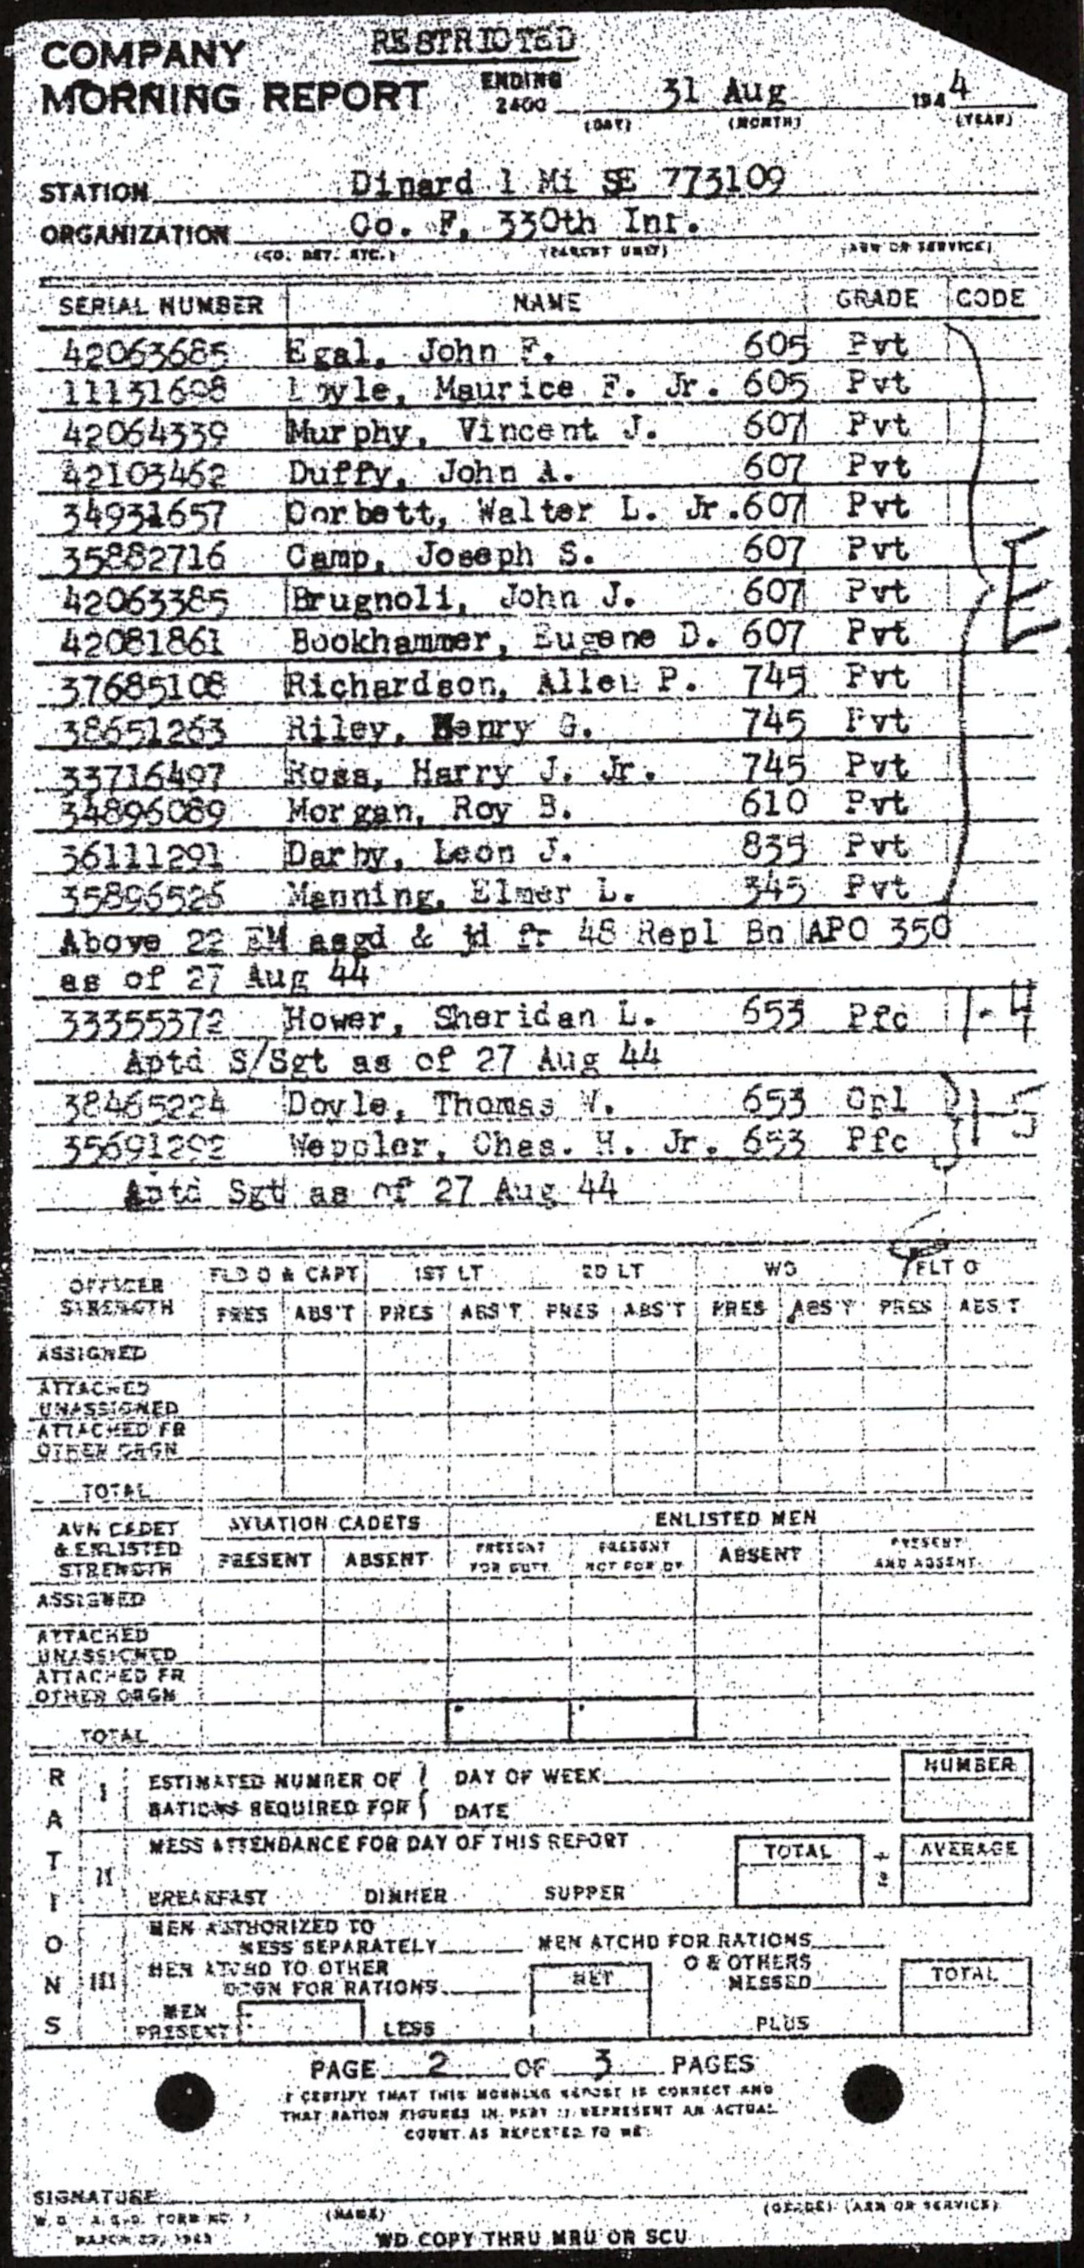 RESTRICTED
COMPANY
MORNING REPORT ENDING 2400 31 Aug 1944
(DAY) (MONTH) (YEAR)
STATION Dinard 1 Mi SE 773109
ORGANIZATION Co. F. 330th Inf.
(CO. DET. ETC.) (PARENT UNIT) (ARM OR SERVICE)
SERIAL NUMBER NAME GRADE CODE
42063685 Egal, John F. 605 Pvt
11131608 Loyle, Maurice F. Jr. 605 Pvt
42064339 Murphy, Vincent J. 607 Pvt
42103462 Duffy, John A. 607 Pvt
34931657 Corbett, Walter L. Jr. 607 Pvt
35882716 Camp, Joseph S. 607 Pvt
42063385 Brugnoli, John J. 607 Pvt E
42081861 Bookhammer, Eugene D. 607 Pvt
37685108 Richardson, Allen P. 745 Pvt
38651263 Riley, Henry G. 745 Pvt
33716497 Ross, Harry J. Jr. 745 Pvt
34896089 Morgan, Roy B. 610 Pvt
36111291 Darby, Leon J. 835 Pvt
35896526 Manning, Elmer L. 345 Pvt
Above 22 EM asgd & jd fr 48 Repl Bn APO 350
as of 27 Aug 44
33355372 Hower, Sheridan L. 653 Pfc 1-4
Aptd S/Sgt as of 27 Aug 44
38465224 Doyle, Thomas W. 653 Cpl 1-5
35691292 Weppler, Chas. H. Jr. 653 Pfc
Aptd Sgt as of 27 Aug 44
OFFICER STRENGTH FLD O & CAPT 1ST LT 2D LT WO FLT O
PRES ABS'T PRES ABS'T PRES ABS'T PRES ABS'T PRES ABS'T
ASSIGNED
ATTACHED
UNASSIGNED
ATTACHED FR
OTHER ORGN
TOTAL
AVN CADET & ENLISTED STRENGTH AVIATION CADETS ENLISTED MEN
PRESENT ABSENT PRESENT FOR DUTY PRESENT NOT FOR DY ABSENT PRESENT AND ABSENT
ASSIGNED
ATTACHED
UNASSIGNED
ATTACHED FR
OTHER ORGN
TOTAL
RATIONS
I ESTIMATED NUMBER OF DAY OF WEEK NUMBER
RATIONS REQUIRED FOR DATE
II MESS ATTENDANCE FOR DAY OF THIS REPORT TOTAL ÷ 3 AVERAGE
BREAKFAST DINNER SUPPER
III MEN AUTHORIZED TO
MESS SEPARATELY MEN ATCHD FOR RATIONS
MEN ATCHD TO OTHER O & OTHERS
ORGN FOR RATIONS NET MESSED TOTAL
MEN
PRESENT LESS PLUS
PAGE 2 OF 3 PAGES
I CERTIFY THAT THIS MORNING REPORT IS CORRECT AND
THAT RATION FIGURES IN PART II REPRESENT AN ACTUAL
COUNT AS REPORTED TO ME.
SIGNATURE
(NAME) (GRADE) (ARM OR SERVICE)
W. D. A. G. O. FORM NO. 1
MARCH 23, 1943
WD COPY THRU MRU OR SCU